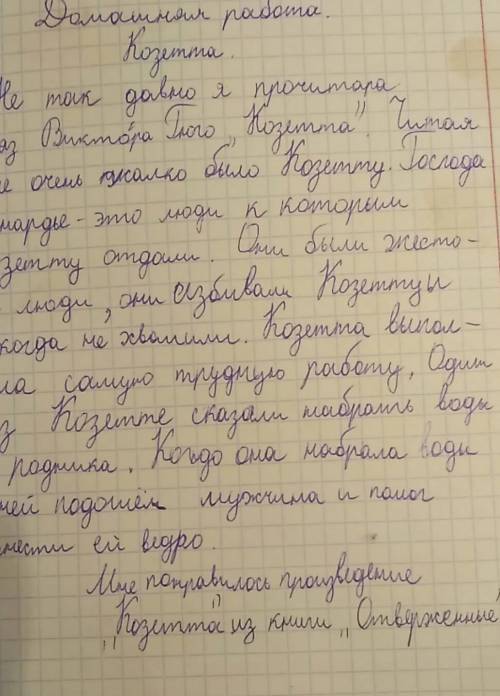 Домашняя работа.
Козетта.
Не так давно я прочитара
аз Виктора Гюго „Козетта". Читая
е очень жалко было Козетту. Господа
нардье - это люди к которым
зетту отдали. Они были жесто-
люди, они избивали Козетту и
когда не хвалили. Козетта выпол-
ла самую трудную работу. Один
з Козетте сказали набрать воды
родника. Когдо она набрала воды
ней подошёл мужчина и помог
нести ей ведро.
Мне понравилось произведение
„Козетта" из книги „Отверженные"